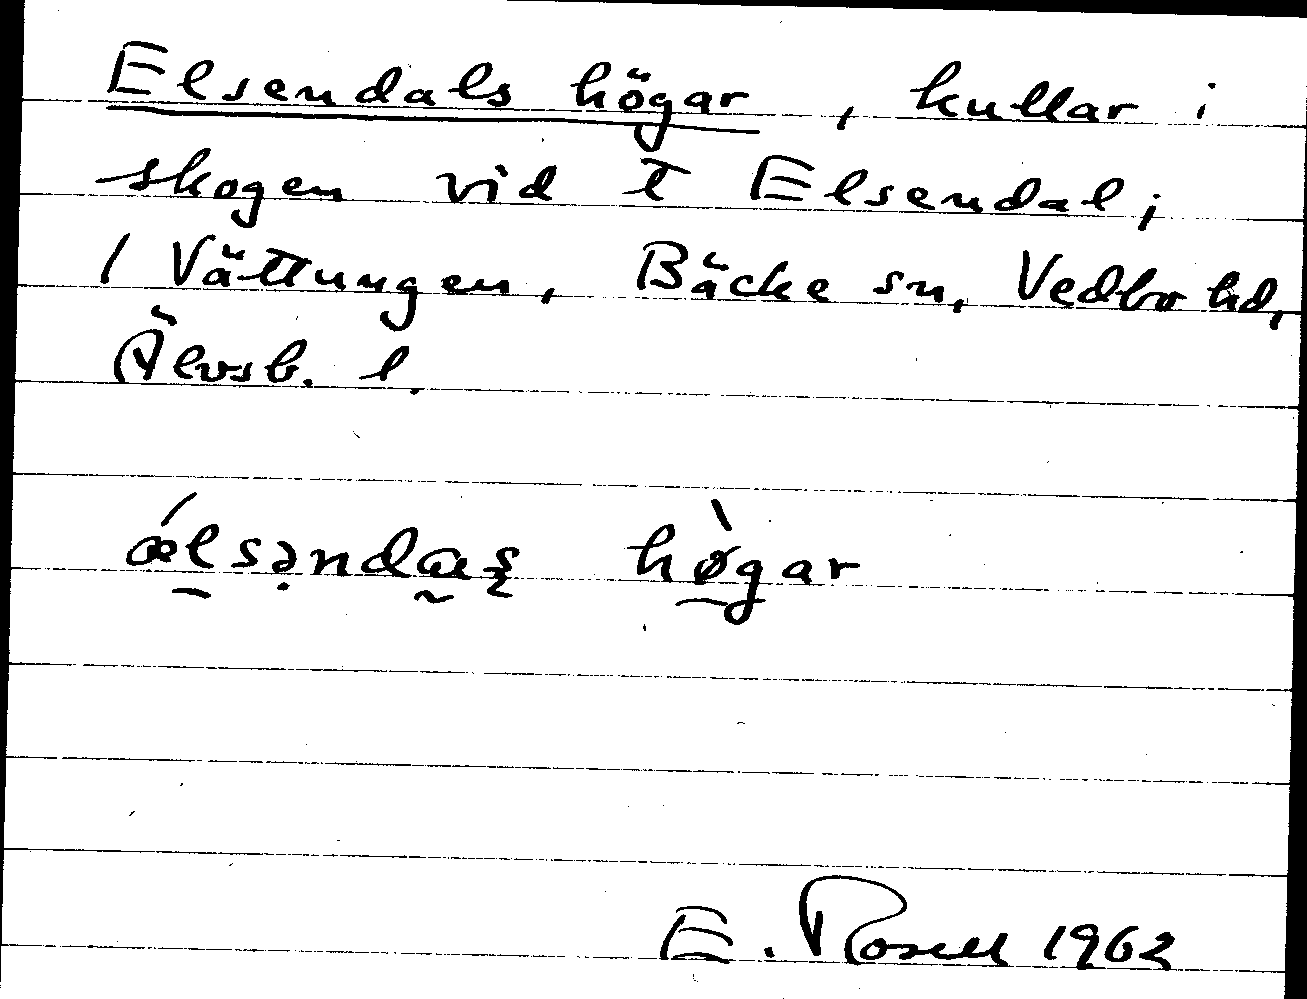 Elsendals högar, kullar i
skogen vid t Elsendal;
/ Vättungen, Bäcke sn, Vedbo hd,
Älvsb. l.
ǽlsəndas högar
E. Rosell 1962